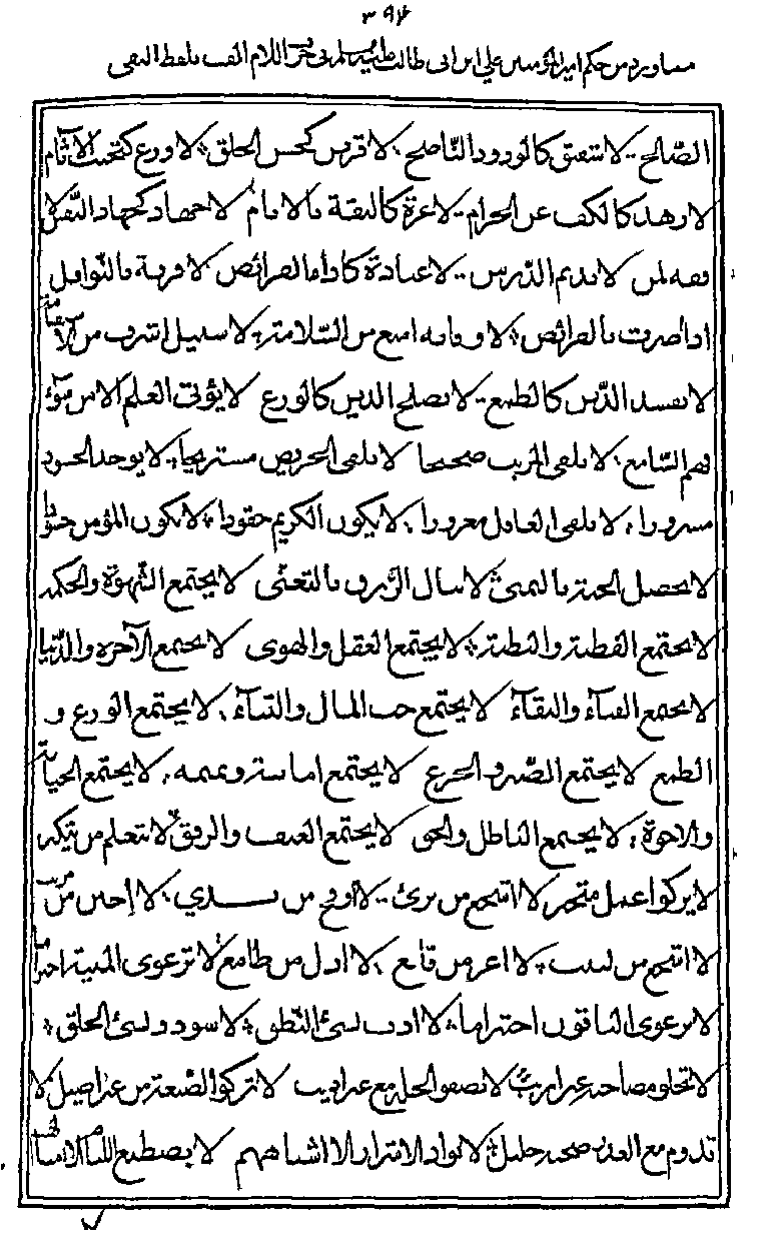 ٣٩٤
مما ورد من حكم امير المؤمنين علي ابن ابي طالب عليه السلام في حرف اللام الف بلفظ النفي
الصّالح لا شفيق كالودود النّاصح لا قرين كحسن الخلق لا ورع كتجنب الآثام
لا زهد كالكف عن الحرام لا غرة كالثقة بالايام لا جهاد كجهاد النّفس لا
فقه لمن لا يديم الدّرس لا عبادة كاداء الفرائض لا قربة بالنّوافل
اذا اضرت بالفرائض لا وقاية امنع من السّلامة لا سبيل اشرف من الاستقامة
لا يفسد الدّين كالطمع لا يصلح الدين كالورع لا يؤتى العلم الا من سوء
فهم السّامع لا يلفى المريب صحيحا لا يلفى الحريص مستريحا لا يوجد الحسود
مسرورا لا يلفى العاقل مغرورا لا يكون الكريم حقودا لا يكون المؤمن حسودا
لا تحصل الجنة بالتمنى لا ينال الرّزق بالتعنّى لا يجتمع الشّهوة والحكمة
لا يجتمع الفطنة والبطنة لا يجتمع العقل والهوى لا يجتمع الآخرة والدّنيا
لا يجتمع الفناء والبقاء لا يجتمع حب المال والثناء لا يجتمع الورع و
الطمع لا يجتمع الصّبر والجزع لا يجتمع امانة ونميمة لا يجتمع الخيانة
والاخوة لا يجتمع الباطل والحق لا يجتمع العنف والرفق لا يتعلم من يتكبر
لا يزكوا عمل متجبر لا اشجع من برئ لا اوقح من بـــذي لا اجبن من مريب
لا اشجع من لبيب لا اعز من قانع لا اذل من طامع لا ترعوى المنية اخترا ما
لا يرعوى الباقون اجتراما لا ادب لسئ النّطق لا سودد لسئ الخلق
لا تخلو مصاحبة غير اريب لا تصفو الخلة مع غير اديب لا تزكوا الصّنعة من غير اصيل لا
تدوم مع الغدر صحبة خليل لا يواد الاشرار الا اشباههم لا يصطنع اللئام الا امثالهم